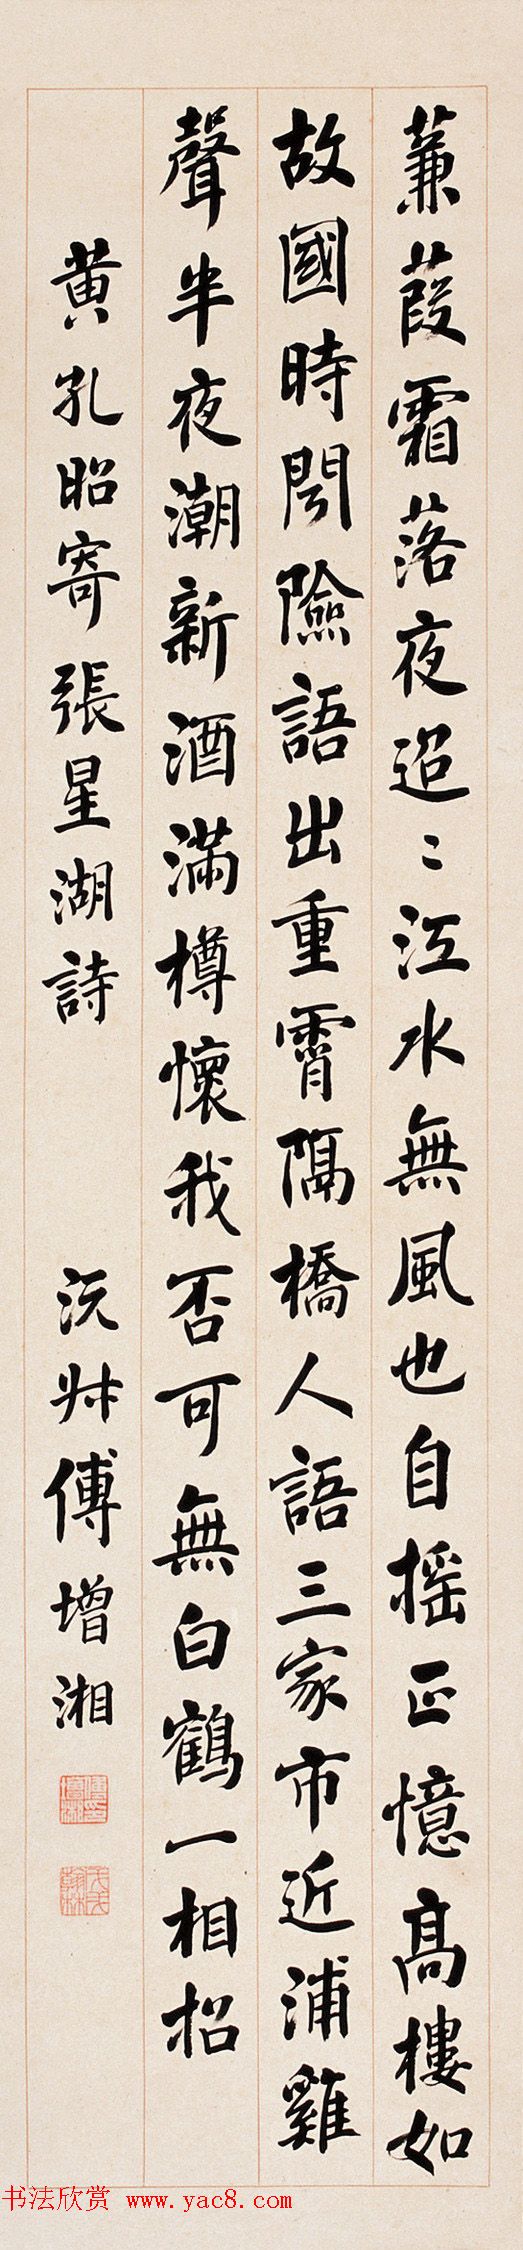 蒹葭霜落夜迢〻江水無風也自搖正憶高樓如
故國時聞險語出重霄隔橋人語三家市近浦雞
聲半夜潮新酒滿樽懷我否可無白鶴一相招
黃孔昭寄張星湖詩
沅叔傅增湘
傅印增湘
戊戌翰林
书法欣赏 www.yac8.com